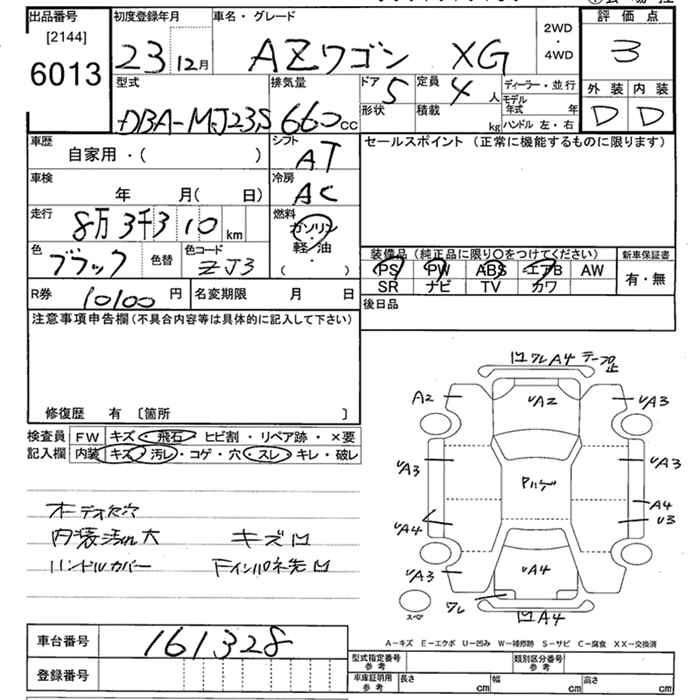 出品番号 初度登録年月 車名・グレード 評価点
[2144]
6013
23 12月 AZワゴン XG 2WD・4WD 3
型式 排気量 ドア 定員 ディーラー・並行 外装 内装
DBA-MJ23S 660cc 5 4人 モデル年式 年 D D
形状 積載 kg ハンドル 左・右
車歴 シフト セールスポイント (正常に機能するものに限ります)
自家用・( ) AT
車検 冷房
年 月( 日) AC
走行 燃料
8万3千310km ガソリン・軽油・( )
色 色替 色コード 装備品 (純正品に限り〇をつけてください) 新車保証書
ブラック ZJ3 PS PW ABS エアB AW 有・無
SR ナビ TV カワ
R券 名変期限 後日品
10100円 月 日
注意事項申告欄(不具合内容等は具体的に記入して下さい)
修復歴 有 〔箇所 〕
検査員 FW キズ・飛石・ヒビ割・リペア跡・×要
記入欄 内装 キズ・汚レ・コゲ・穴・スレ・キレ・破レ
オーディオ欠穴
内装汚れ大 キズ凹
ハンドルカバー Fインパネ先凹
凹 ワレ A4 テープ止
A2 UA2 UA3
UA3 Pハゲ UA3
A4
UA4 U3
UA3 UA4
ワレ 凹A4
スペア
A-キズ E-エクボ U-凹み W-補修跡 S-サビ C-腐食 XX-交換済
車台番号 161328
登録番号
型式指定番号参考 類別区分番号参考
車庫証明用参考 長さ cm 幅 cm 高さ cm